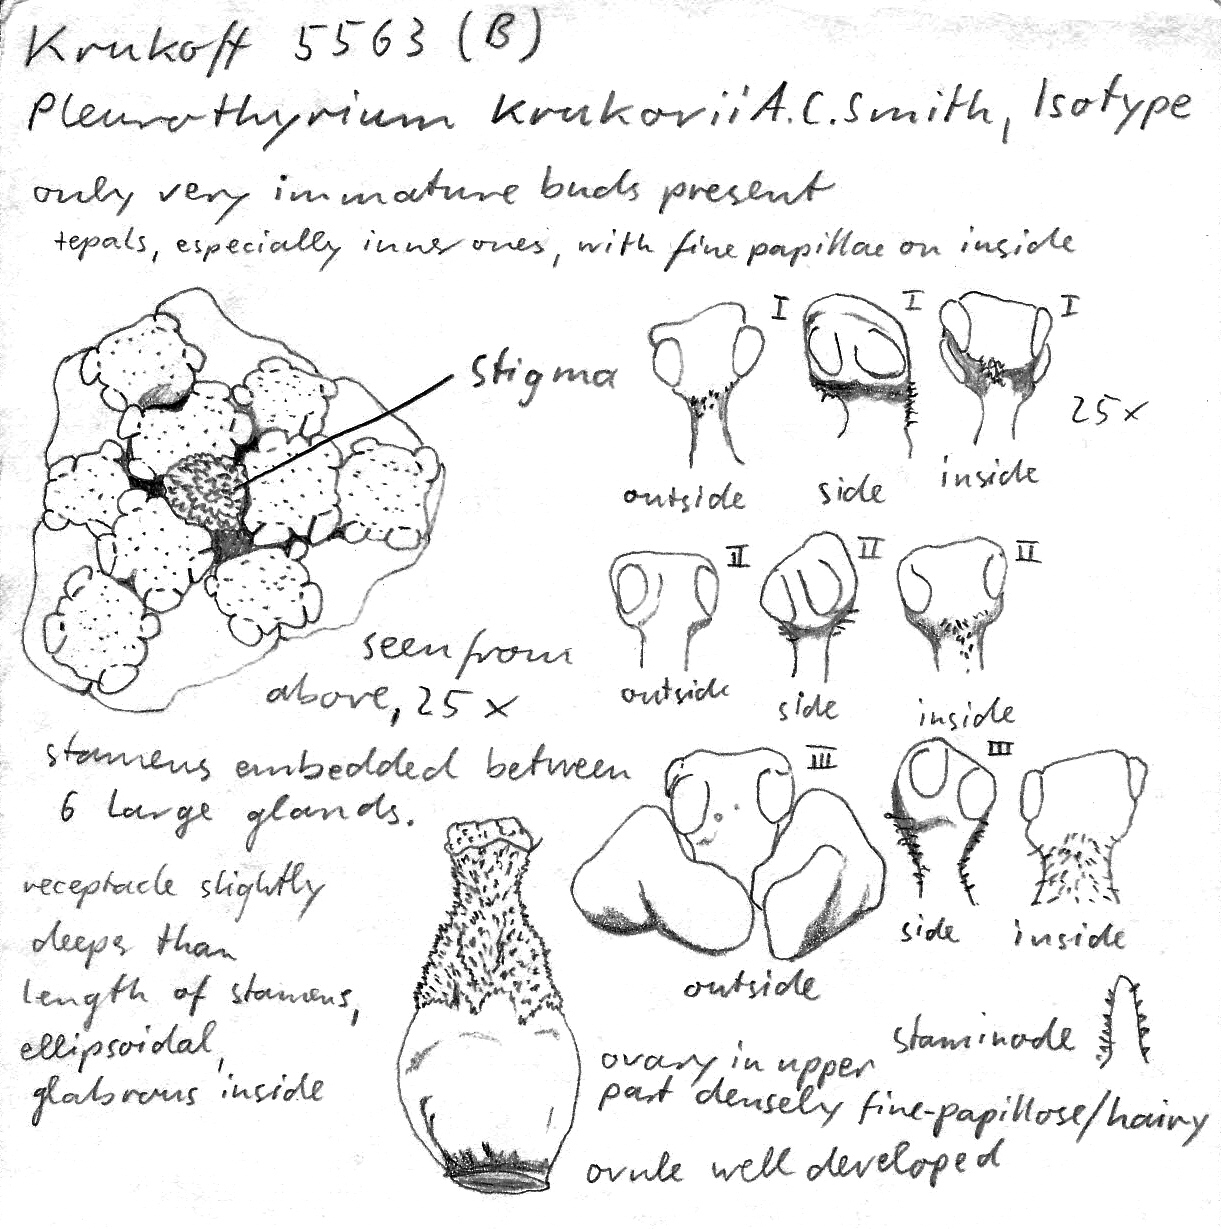 Krukoff 5563 (B)
Pleurothyrium krukovii A.C.Smith, Isotype
only very immature buds present
tepals, especially inner ones, with fine papillae on inside
stigma
I
I
I
25x
outside
side
inside
II
II
II
outside
side
inside
seen from
above, 25x
stamens embedded between
6 large glands.
III
III
outside
side
inside
receptacle slightly
deeper than
length of stamens,
ellipsoidal,
glabrous inside
staminode
ovary in upper
part densely fine-papillose/hairy
ovule well developed